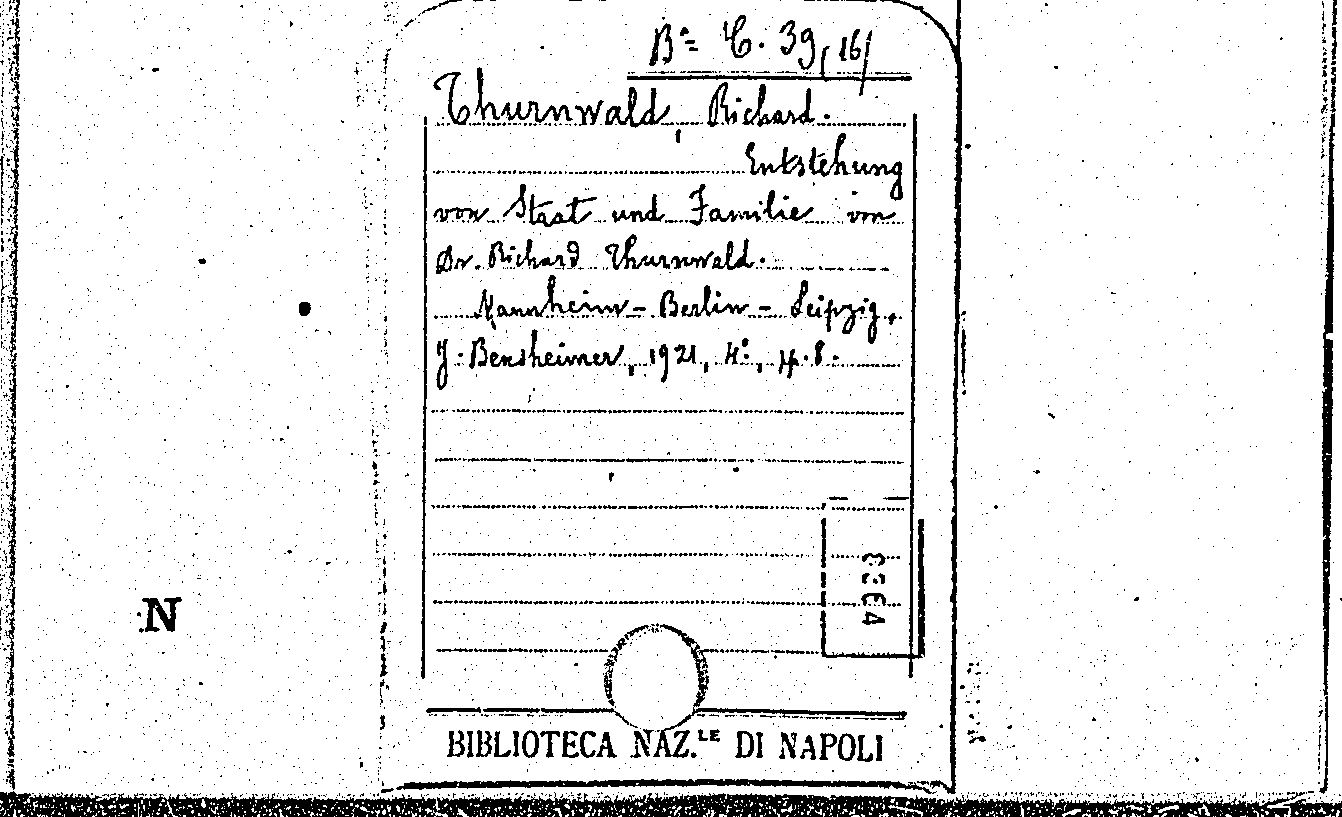 Bª C. 39 (16/
Thurnwald, Richard.
Entstehung
von Staat und Familie von
Dr. Richard Thurnwald.
Mannheim - Berlin - Leipzig,
J. Bensheimer, 1921, 4º, p. 8.
8304
N
BIBLIOTECA NAZ.LE DI NAPOLI